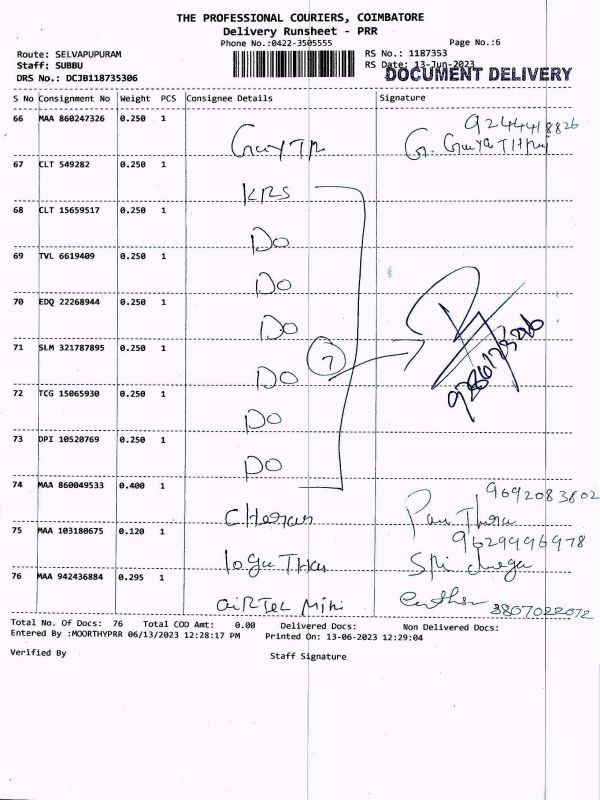 THE PROFESSIONAL COURIERS, COIMBATORE
Delivery Runsheet - PRR
Phone No.:0422-3505555
Page No.:6
Route: SELVAPUPURAM
RS No.: 1187353
Staff: SUBBU
RS Date: 13-Jun-2023
DRS No.: DCJB118735306
DOCUMENT DELIVERY
S No Consignment No Weight PCS Consignee Details Signature
66 MAA 860247326 0.250 1
9244418826
67 CLT 549282 0.250 1
KRS
68 CLT 15659517 0.250 1
DO
69 TVL 6619409 0.250 1
DO
70 EDQ 22268944 0.250 1
DO
71 SLM 321787895 0.250 1
7
DO
72 TCG 15065930 0.250 1
DO
73 DPI 10520769 0.250 1
DO
74 MAA 860049533 0.400 1
Cheran
75 MAA 103180675 0.120 1
9629996978
76 MAA 942436884 0.295 1
AIRTEL
3807022072
Total No. Of Docs: 76 Total COD Amt: 0.00 Delivered Docs: Non Delivered Docs:
Entered By :MOORTHYPRR 06/13/2023 12:28:17 PM Printed On: 13-06-2023 12:29:04
Verified By
Staff Signature